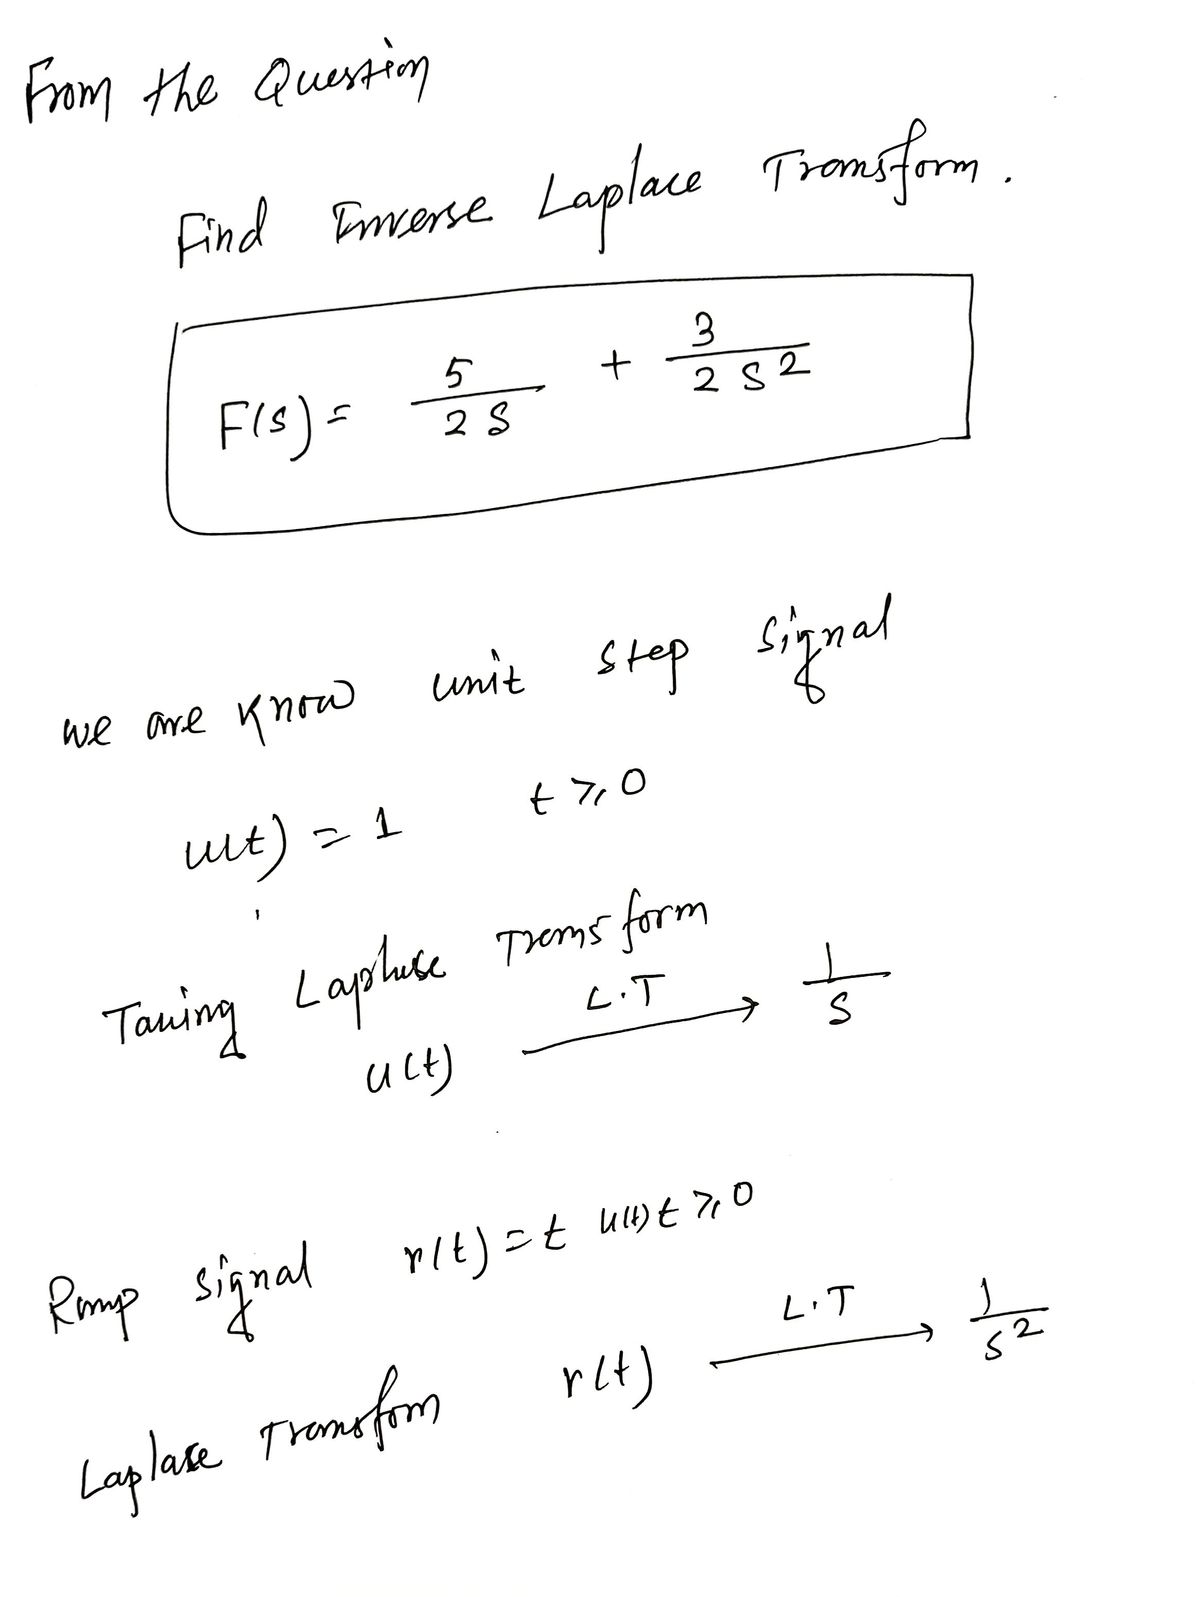 From the Question
Find Inverse Laplace Transform.
F(s) = 5/2S + 3/2S²
we are know unit step signal
u(t) = 1 t ≥ 0
Taking Laplase Transform
u(t) L.T → 1/S
Ramp signal r(t) = t u(t) t ≥ 0
Laplase Transfom r(t) L.T → 1/S²